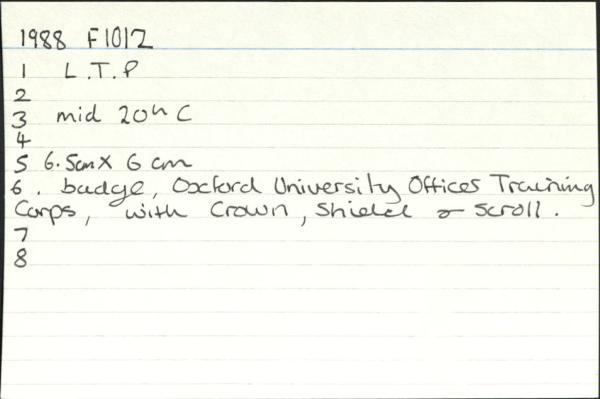 1988 F1012
1 L.T.P
2
3 mid 20th C
4
5 6.5cm x 6 cm
6. badge, Oxford University Offices Training
Corps, with Crown, Shield & Scroll.
7
8